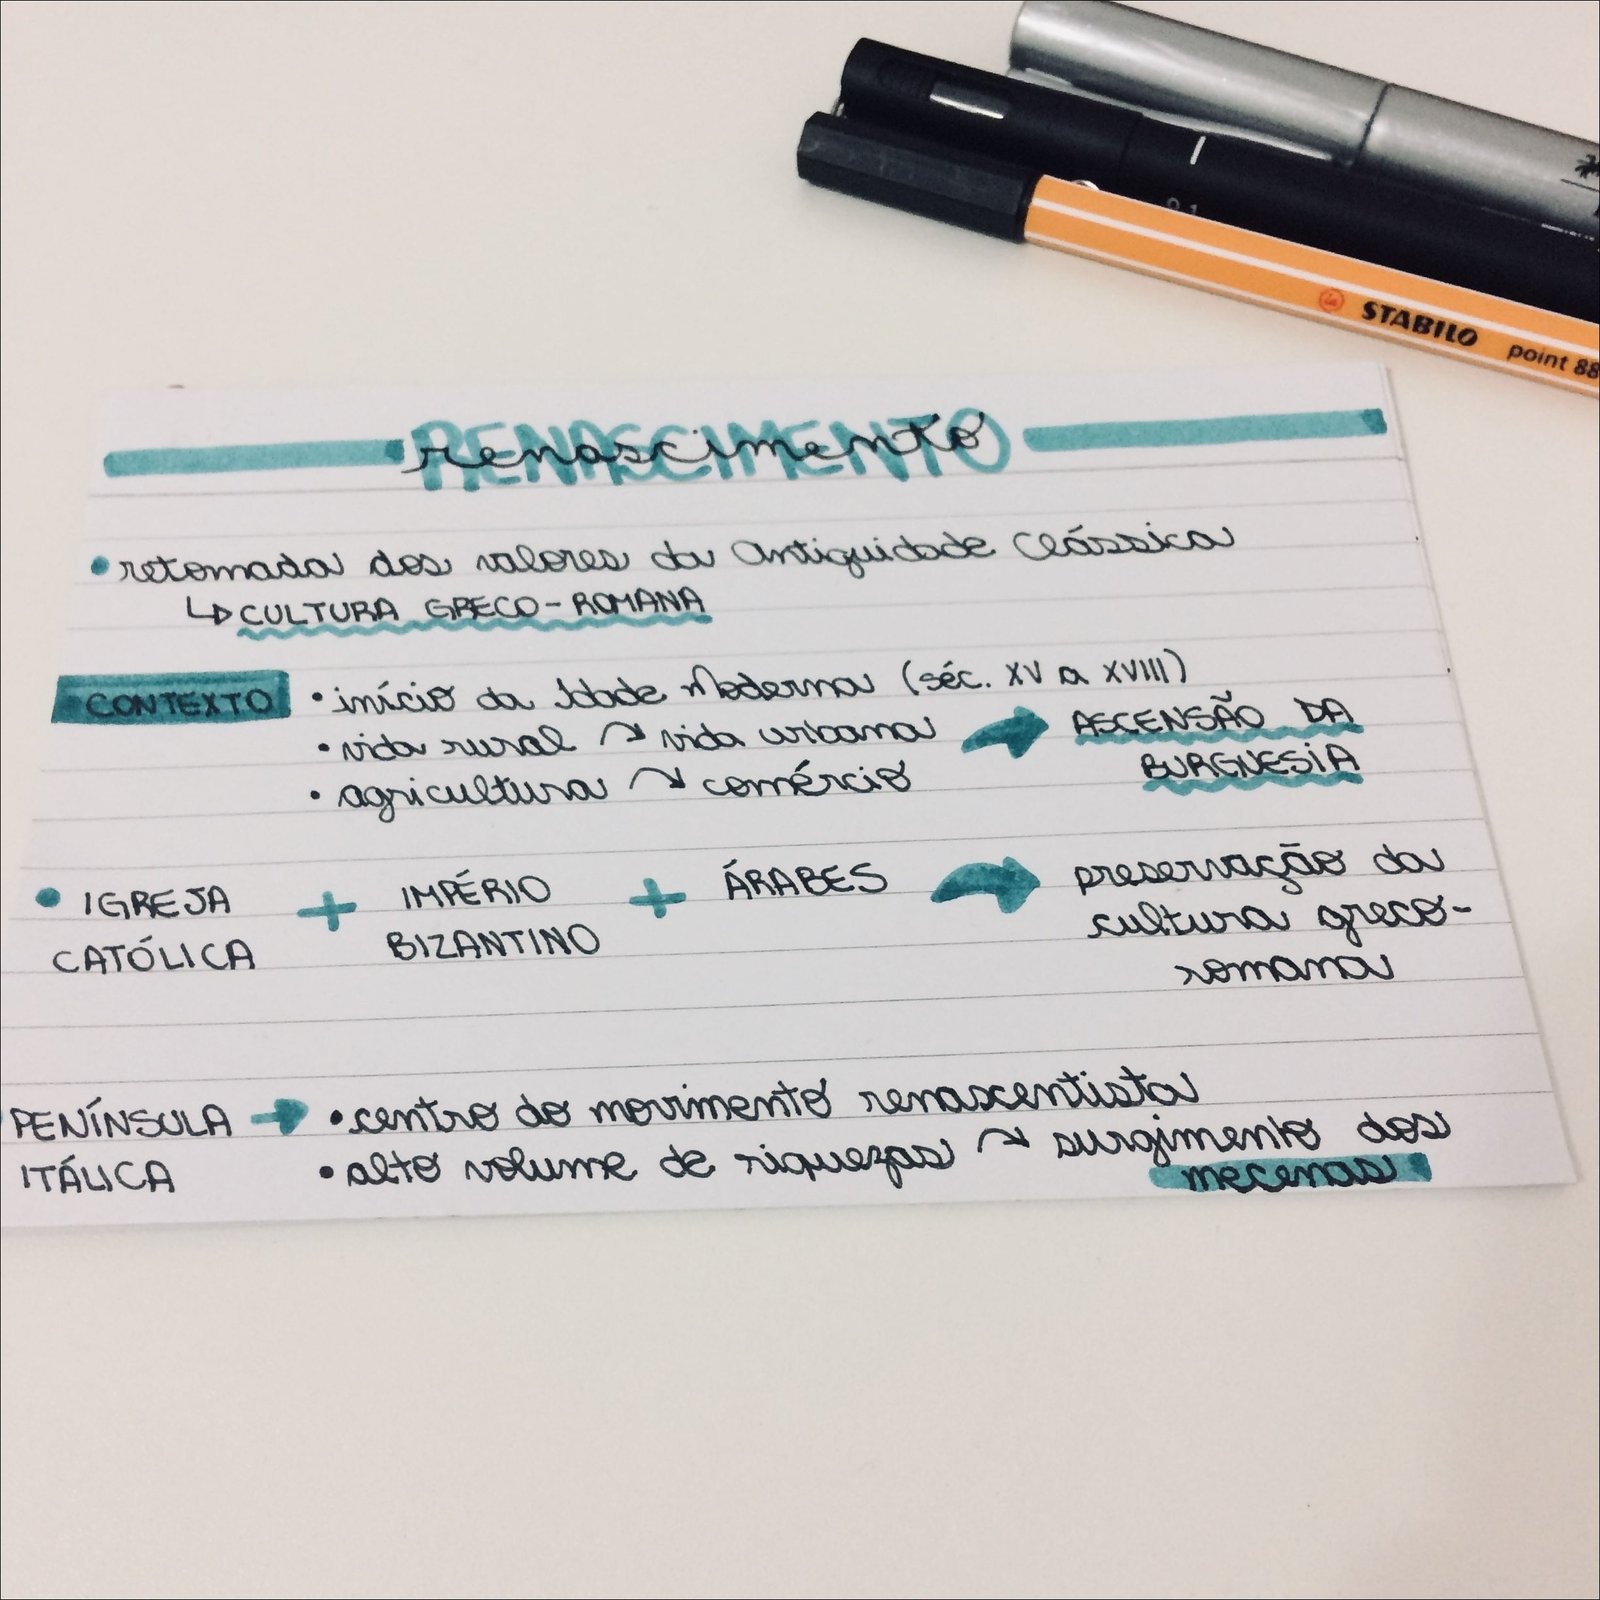 STABILO point 88
0.1
RENASCIMENTO
renascimento
• retomada dos valores da Antiguidade Clássica
↳ CULTURA GRECO-ROMANA
CONTEXTO • início da Idade Moderna (séc. XV a XVIII)
• vida rural ↷ vida urbana → ASCENSÃO DA
• agricultura ↷ comércio BURGNESIA
• IGREJA + IMPÉRIO + ÁRABES → preservação da
CATÓLICA BIZANTINO cultura greco-
romana
PENÍNSULA → • centro do movimento renascentista
ITÁLICA • alto volume de riquezas ↷ surgimento dos
mecenas